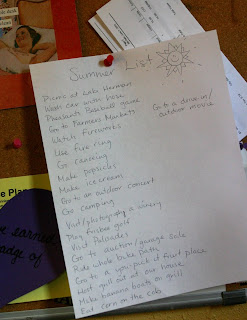 Summer List
Picnic at Lake Harmon
Wash car with hose
Pheasants Baseball game
Go to Farmers Markets
Watch fireworks
Use fire ring
Go canoeing
Make popsicles
Make ice cream
Go to an outdoor concert
Go camping
Visit/photography a winery
Play frisbee golf
Visit Palisades
Go to auction/garage sale
Ride whole bike path
Go to a you-pick it fruit place
Host grill out at our house
Make banana boats on grill
Eat corn on the cob
Go to a drive-in/
outdoor movie
earned
badge of